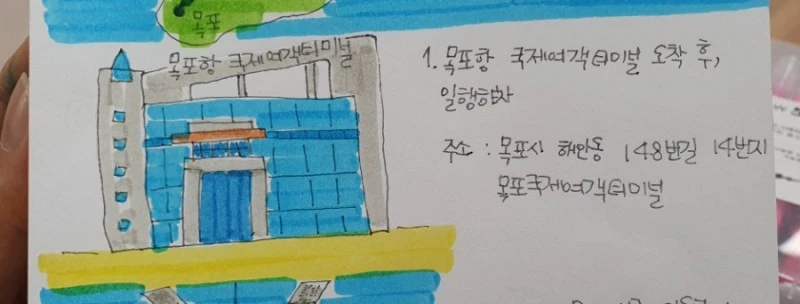 목포
목포항 국제여객터미널
1. 목포항 국제여객터미널 도착 후,
일행합차
주소 : 목포시 해안동 148번길 14번지
목포국제여객터미널